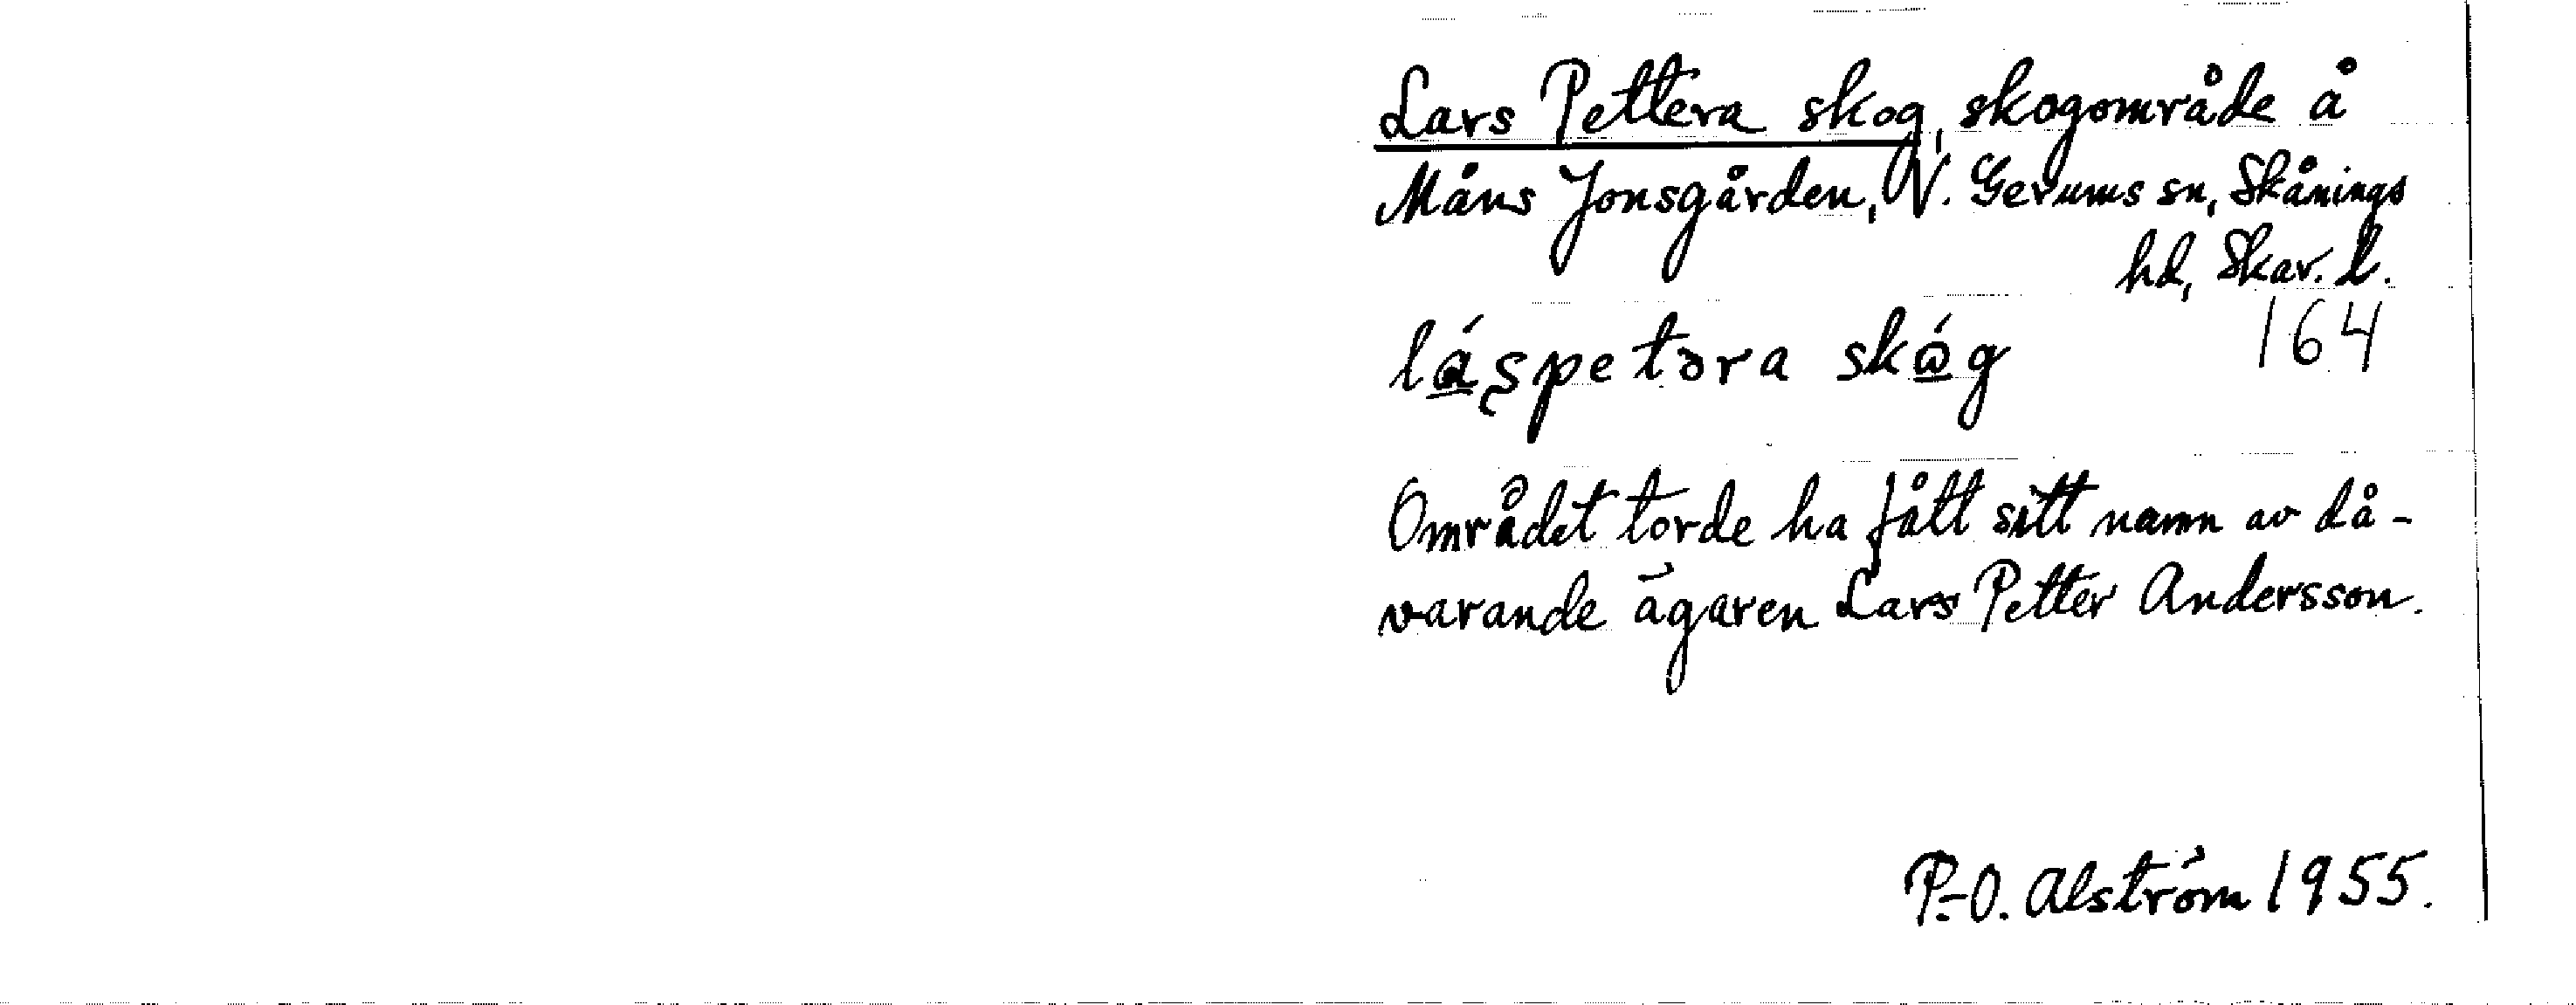 Lars Pettera skog, skogområde å
Måns Jonsgården, N. Gerums sn, Skånings
hd, Skar. l.
lá̱s̡petəra skǻ̱g 164
Området torde ha fått sitt namn av då-
varande ägaren Lars Petter Andersson.
P.-O. Alström 1955.